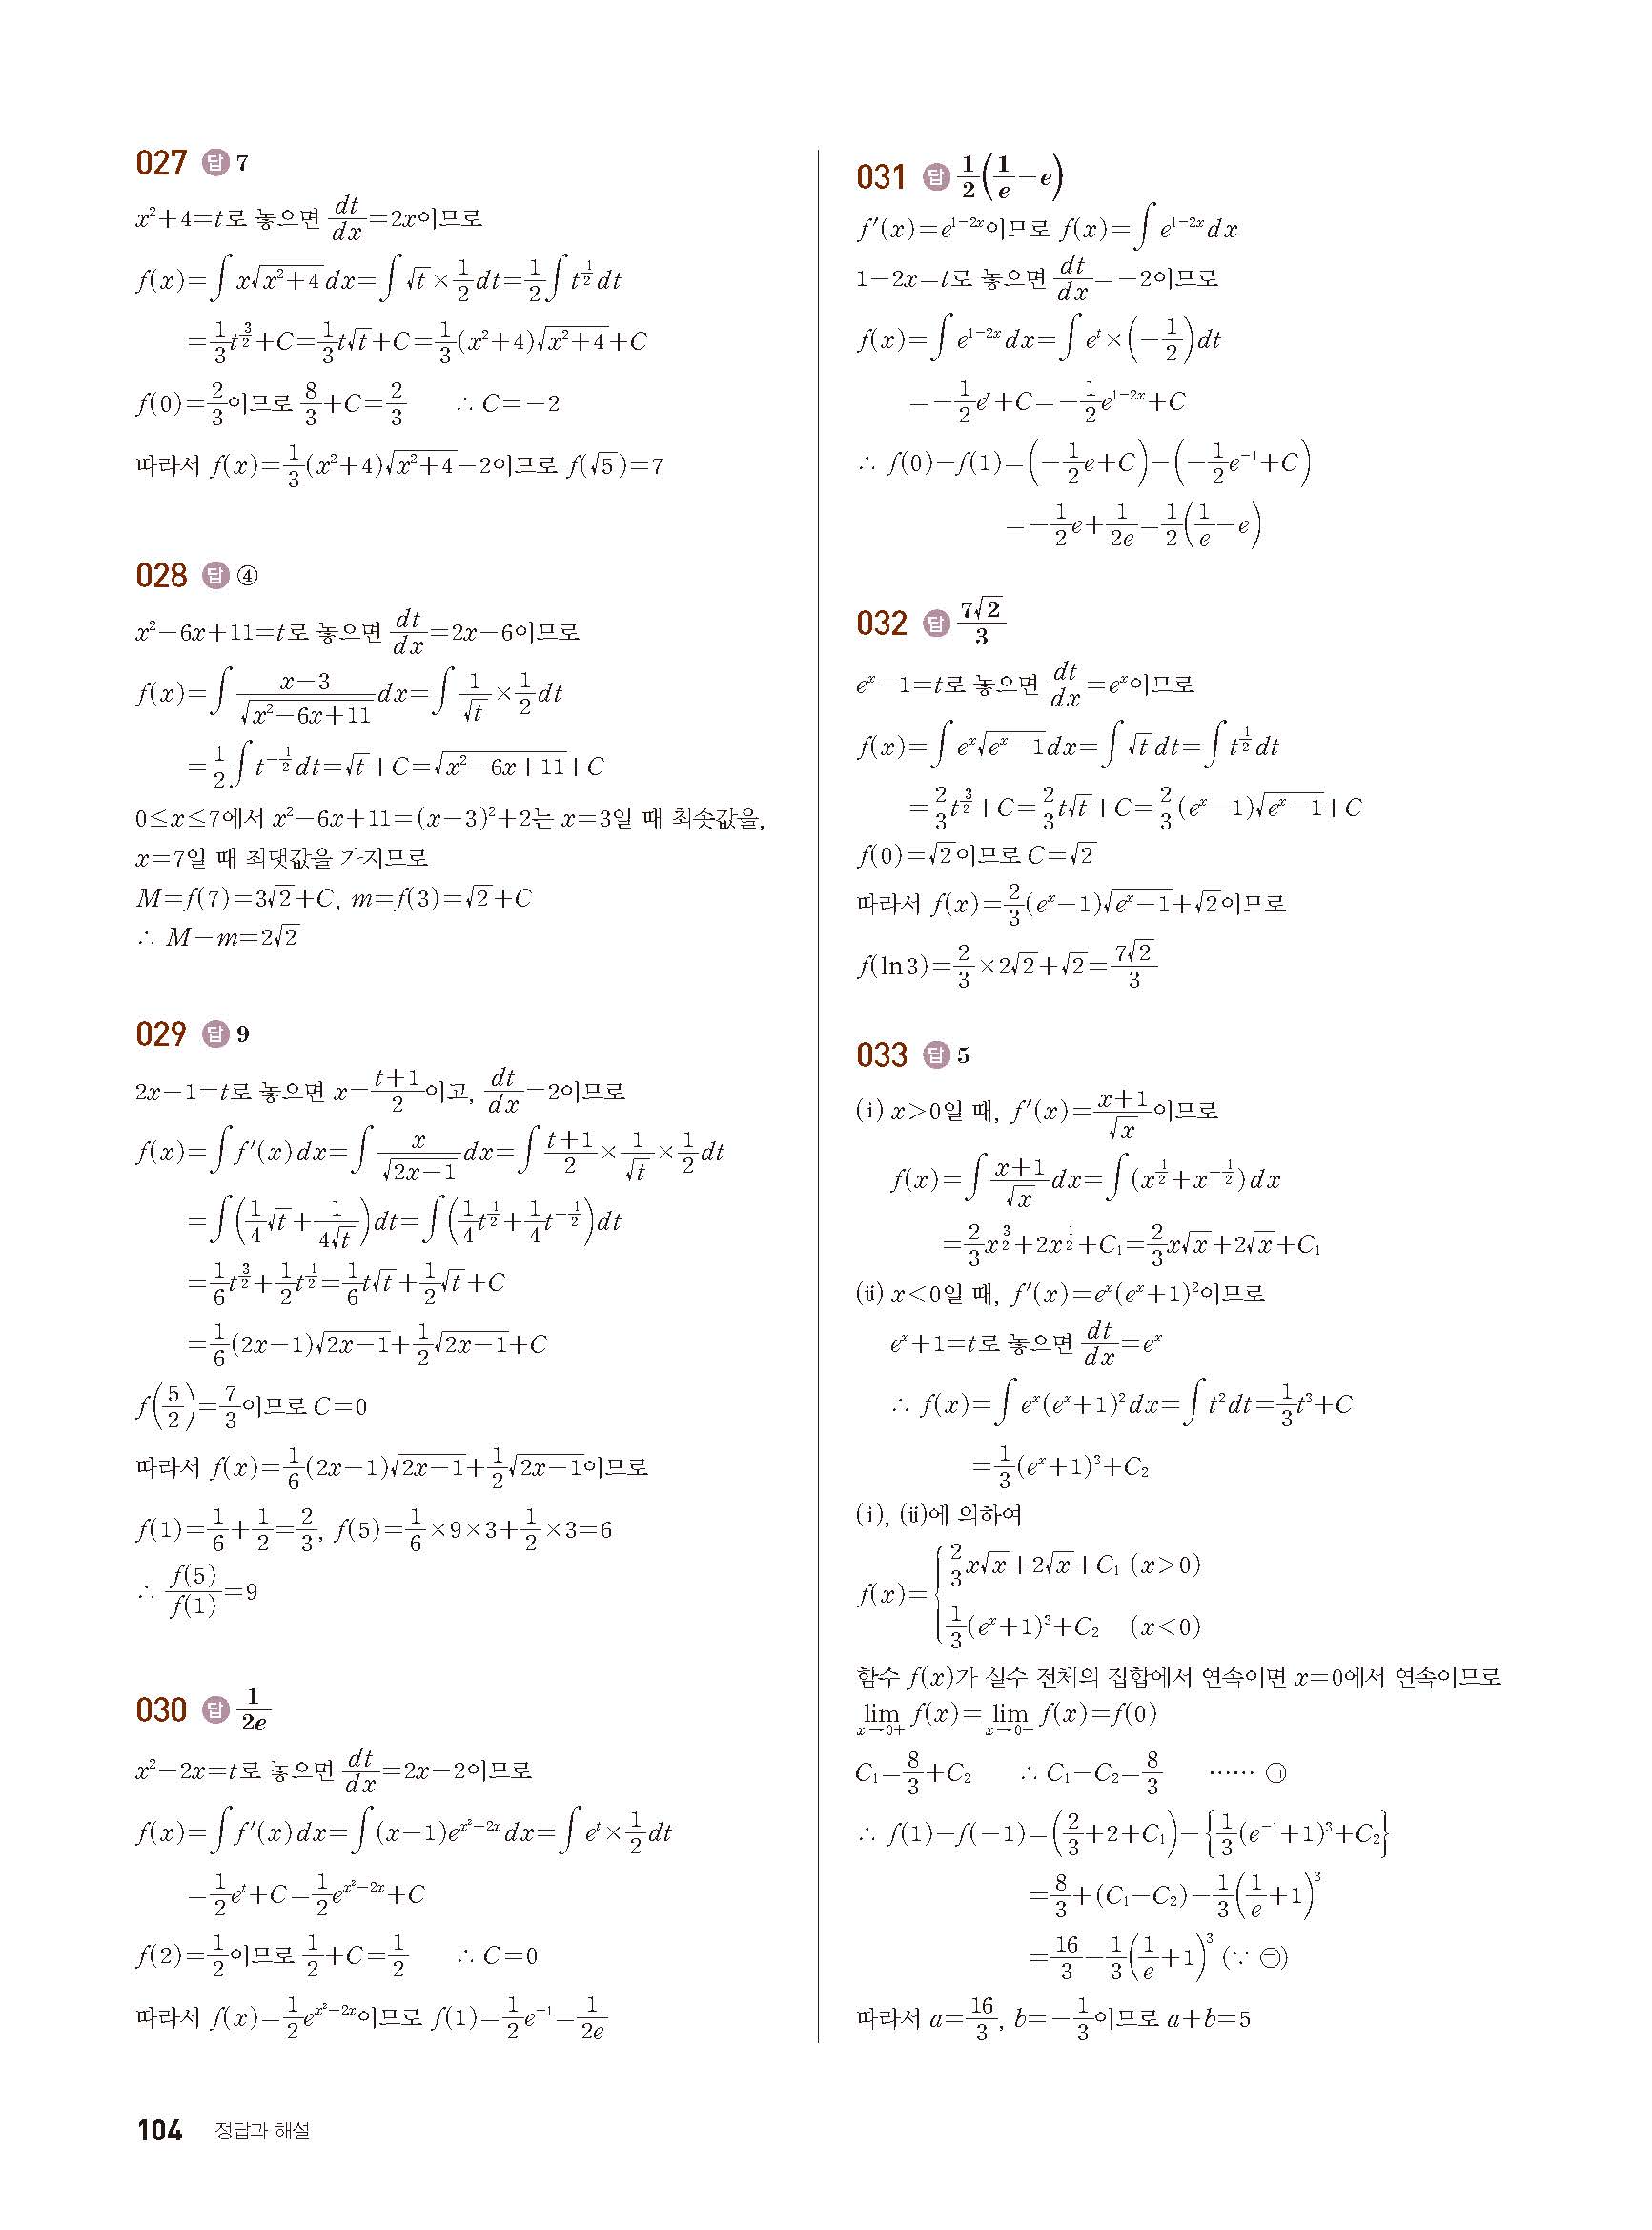 027 답 7
x²+4=t로 놓으면 dt/dx=2x이므로
f(x)=∫x√(x²+4) dx=∫√t×1/2 dt=1/2∫t^(1/2) dt
=1/3 t^(3/2)+C=1/3 t√t+C=1/3(x²+4)√(x²+4)+C
f(0)=2/3이므로 8/3+C=2/3 ∴ C=-2
따라서 f(x)=1/3(x²+4)√(x²+4)-2이므로 f(√5)=7
028 답 ④
x²-6x+11=t로 놓으면 dt/dx=2x-6이므로
f(x)=∫(x-3)/√(x²-6x+11) dx=∫1/√t×1/2 dt
=1/2∫t^(-1/2) dt=√t+C=√(x²-6x+11)+C
0≤x≤7에서 x²-6x+11=(x-3)²+2는 x=3일 때 최솟값을,
x=7일 때 최댓값을 가지므로
M=f(7)=3√2+C, m=f(3)=√2+C
∴ M-m=2√2
029 답 9
2x-1=t로 놓으면 x=(t+1)/2이고, dt/dx=2이므로
f(x)=∫f′(x)dx=∫x/√(2x-1) dx=∫(t+1)/2×1/√t×1/2 dt
=∫(1/4 √t+1/(4√t))dt=∫(1/4 t^(1/2)+1/4 t^(-1/2))dt
=1/6 t^(3/2)+1/2 t^(1/2)=1/6 t√t+1/2 √t+C
=1/6(2x-1)√(2x-1)+1/2 √(2x-1)+C
f(5/2)=7/3이므로 C=0
따라서 f(x)=1/6(2x-1)√(2x-1)+1/2 √(2x-1)이므로
f(1)=1/6+1/2=2/3, f(5)=1/6×9×3+1/2×3=6
∴ f(5)/f(1)=9
030 답 1/2e
x²-2x=t로 놓으면 dt/dx=2x-2이므로
f(x)=∫f′(x)dx=∫(x-1)e^(x²-2x) dx=∫e^t×1/2 dt
=1/2 e^t+C=1/2 e^(x²-2x)+C
f(2)=1/2이므로 1/2+C=1/2 ∴ C=0
따라서 f(x)=1/2 e^(x²-2x)이므로 f(1)=1/2 e^(-1)=1/2e
031 답 1/2(1/e-e)
f′(x)=e^(1-2x)이므로 f(x)=∫e^(1-2x) dx
1-2x=t로 놓으면 dt/dx=-2이므로
f(x)=∫e^(1-2x) dx=∫e^t×(-1/2)dt
=-1/2 e^t+C=-1/2 e^(1-2x)+C
∴ f(0)-f(1)=(-1/2 e+C)-(-1/2 e^(-1)+C)
=-1/2 e+1/2e=1/2(1/e-e)
032 답 7√2/3
e^x-1=t로 놓으면 dt/dx=e^x이므로
f(x)=∫e^x√(e^x-1)dx=∫√t dt=∫t^(1/2) dt
=2/3 t^(3/2)+C=2/3 t√t+C=2/3(e^x-1)√(e^x-1)+C
f(0)=√2이므로 C=√2
따라서 f(x)=2/3(e^x-1)√(e^x-1)+√2이므로
f(ln3)=2/3×2√2+√2=7√2/3
033 답 5
(ⅰ) x>0일 때, f′(x)=(x+1)/√x이므로
f(x)=∫(x+1)/√x dx=∫(x^(1/2)+x^(-1/2))dx
=2/3 x^(3/2)+2x^(1/2)+C₁=2/3 x√x+2√x+C₁
(ⅱ) x<0일 때, f′(x)=e^x(e^x+1)²이므로
e^x+1=t로 놓으면 dt/dx=e^x
∴ f(x)=∫e^x(e^x+1)²dx=∫t²dt=1/3 t³+C
=1/3(e^x+1)³+C₂
(ⅰ), (ⅱ)에 의하여
f(x)={2/3 x√x+2√x+C₁ (x>0)
1/3(e^x+1)³+C₂ (x<0)
함수 f(x)가 실수 전체의 집합에서 연속이면 x=0에서 연속이므로
lim x→0+ f(x)=lim x→0- f(x)=f(0)
C₁=8/3+C₂ ∴ C₁-C₂=8/3 …… ㉠
∴ f(1)-f(-1)=(2/3+2+C₁)-{1/3(e^(-1)+1)³+C₂}
=8/3+(C₁-C₂)-1/3(1/e+1)³
=16/3-1/3(1/e+1)³ (∵ ㉠)
따라서 a=16/3, b=-1/3이므로 a+b=5
104 정답과 해설